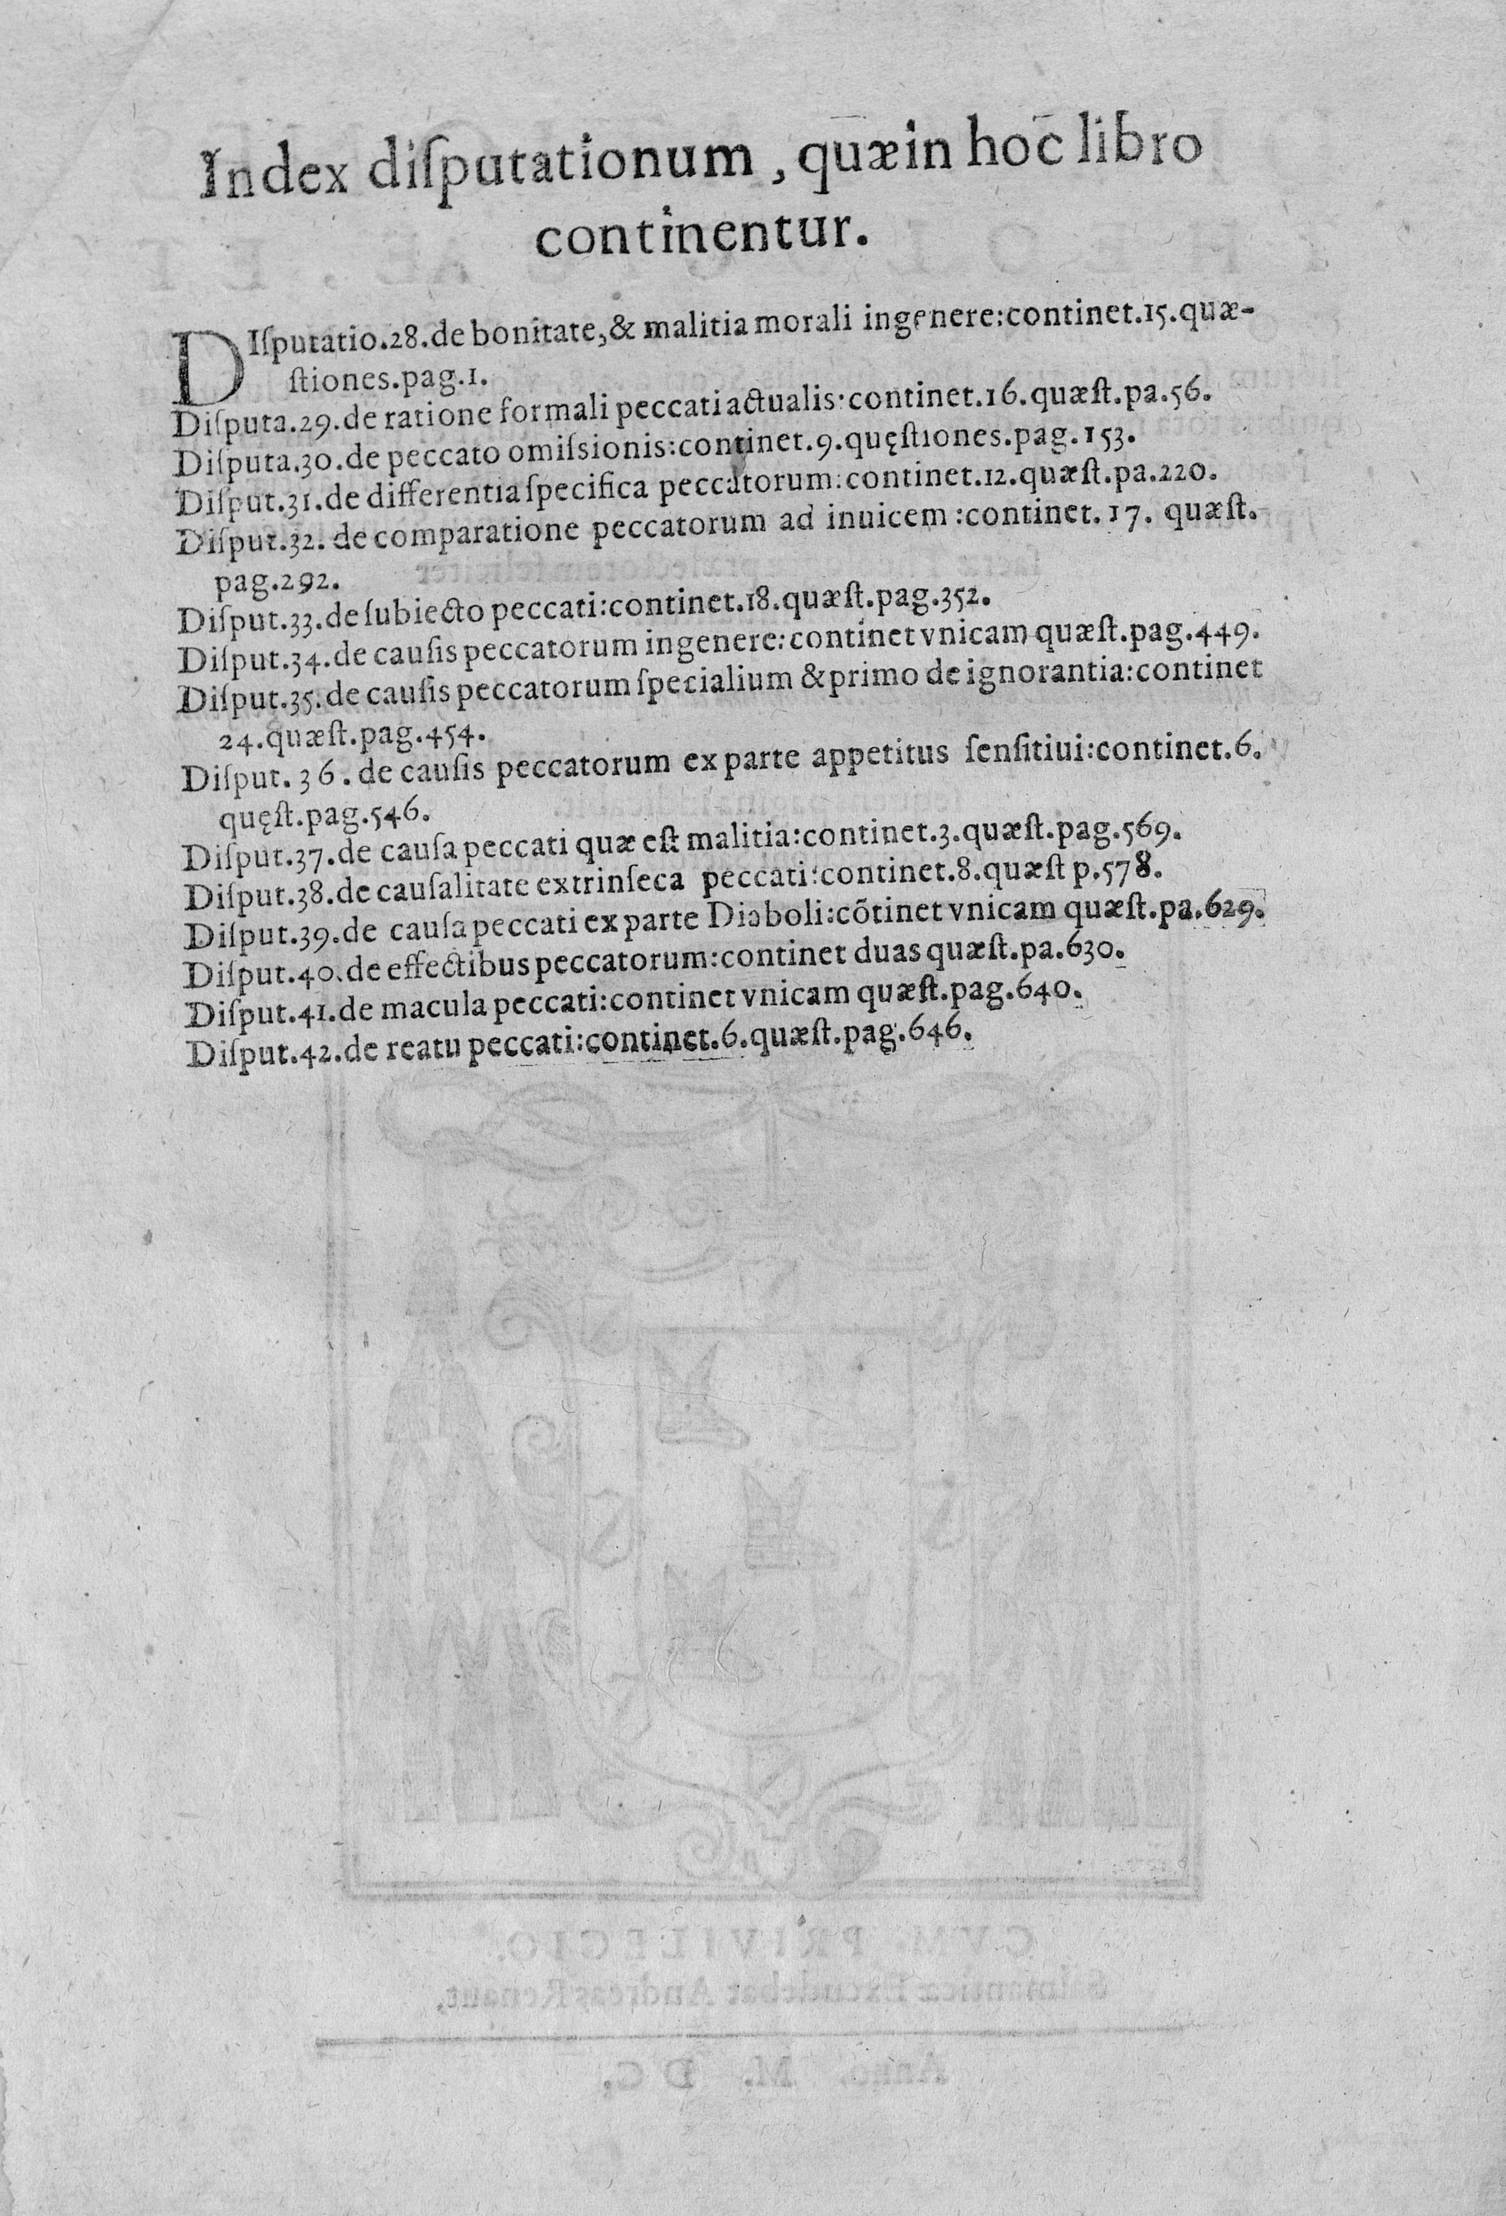 Index diſputationum, quæ in hoc libro
continentur.
DIſputatio.28.de bonitate,& malitia morali in genere:continet.15.quæ-
ſtiones.pag.1.
Diſputa.29.de ratione formali peccati actualis:continet.16.quæſt.pa.56.
Diſputa.30.de peccato omiſsionis:continet.9.quęſtiones.pag.153.
Diſput.31.de differentia ſpecifica peccatorum:continet.12.quæſt.pa.220.
Diſput.32. de comparatione peccatorum ad inuicem:continet.17. quæſt.
pag.292.
Diſput.33.de ſubiecto peccati:continet.18.quæſt.pag.352.
Diſput.34.de cauſis peccatorum in genere:continet vnicam quæſt.pag.449.
Diſput.35.de cauſis peccatorum ſpecialium & primo de ignorantia:continet
24.quæſt.pag.454.
Diſput.36.de cauſis peccatorum ex parte appetitus ſenſitiui:continet.6.
quęſt.pag.546.
Diſput.37.de cauſa peccati quæ est malitia:continet.3.quæſt.pag.569.
Diſput.38.de cauſalitate extrinſeca peccati:continet.8.quæſt p.578.
Diſput.39.de cauſa peccati ex parte Diaboli:cõtinet vnicam quæſt.pa.629.
Diſput.40.de effectibus peccatorum:continet duas quæſt.pa.630.
Diſput.41.de macula peccati:continet vnicam quæſt.pag.640.
Diſput.42.de reatu peccati:continet.6.quæſt.pag.646.
CVM. PRIVILEGIO.
Salmanticæ Excudebat Andreas Renaut,
Anno. M. DC,